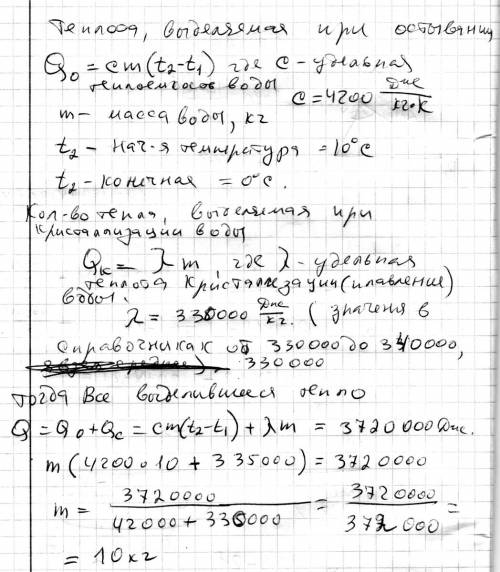 Теплота, выделяемая при остывании
Q₀ = cm(t₂-t₁) где с - удельная
теплоемкость воды
c = 4200 Дж/кг·К
m - масса воды, кг
t₂ - нач-я температура = 10°C
t₂ - конечная = 0°C.
Кол-во тепла, выделяемая при
кристаллизации воды
Qк = λ m, где λ - удельная
теплота кристаллизации (плавление)
воды.
λ = 330000 Дж/кг. ( значения в
справочниках от 330000 до 340000,
330000
тогда Все выделившееся тепло
Q = Q₀ + Qc = cm(t₂-t₁) + λm = 3720000 Дж.
m (4200·10 + 335000) = 3720000
m = 3720000 / 42000 + 330000 = 3720000 / 372000 =
= 10 кг